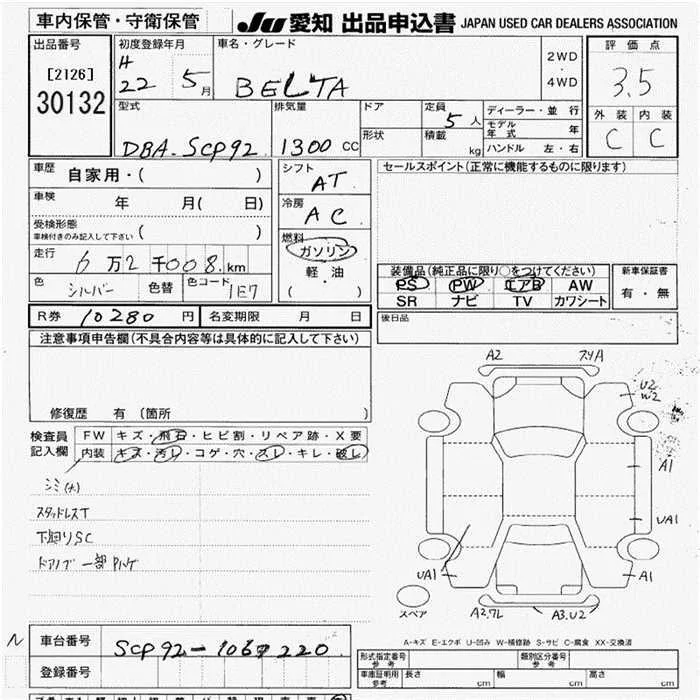 車内保管・守衛保管
JU 愛知 出品申込書 JAPAN USED CAR DEALERS ASSOCIATION
出品番号
[2126]
30132
初度登録年月
H
22 5月
車名・グレード
BELTA
2WD
・
4WD
評価点
3.5
外装 内装
C C
型式
DBA-SCP92
排気量
1300 CC
ドア
形状
定員
5人
積載
kg
ディーラー・並行
モデル年式 年
ハンドル 左・右
車歴 自家用・( )
車検 年 月( 日)
受検形態
車検付きのみ記入して下さい ( )
走行 6万2千008km
色 シルバー 色替 色コード 1E7
シフト
AT
冷房
AC
燃料
ガソリン
軽・油
( )
セールスポイント(正常に機能するものに限ります)
装備品(純正品に限り○をつけてください)
PS PW エアB AW
SR ナビ TV カワシート
新車保証書
有・無
R券 10280円 名変期限 月 日
後日品
注意事項申告欄(不具合内容等は具体的に記入して下さい)
修復歴 有 (箇所 )
検査員
記入欄
FW キズ・飛石・ヒビ割・リペア跡・X要
内装 キズ・汚レ・コゲ・穴・スレ・キレ・破レ
シミ(大)
スタッドレスT
下廻りSC
ドアノブ一部
A2
U2
W2
A1
UA1
UA1
A1
スペア
A2.7L
A3.U2
A-キズ E-エクボ U-凹み W-補修跡 S-サビ C-腐食 XX-交換済
N
車台番号 SCP92-106 220
登録番号
形式指定番号
参考
類別区分番号
参考
車庫証明用
参考
長さ 幅 高さ